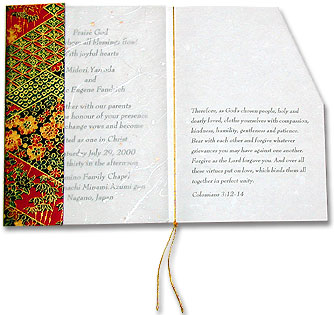 Praise God
all blessings flow!
joyful hearts
Midori
and
Eugene
with our parents
honour of your presence
change vows and become
as one in Christ
July 29, 2000
thirty in the afternoon
Family Chapel
Minami Azumi gun
Nagano, Japan
Therefore, as God's chosen people, holy and
dearly loved, clothe yourselves with compassion,
kindness, humility, gentleness and patience.
Bear with each other and forgive whatever
grievances you may have against one another.
Forgive as the Lord forgave you. And over all
these virtues put on love, which binds them all
together in perfect unity.
Colossians 3:12-14